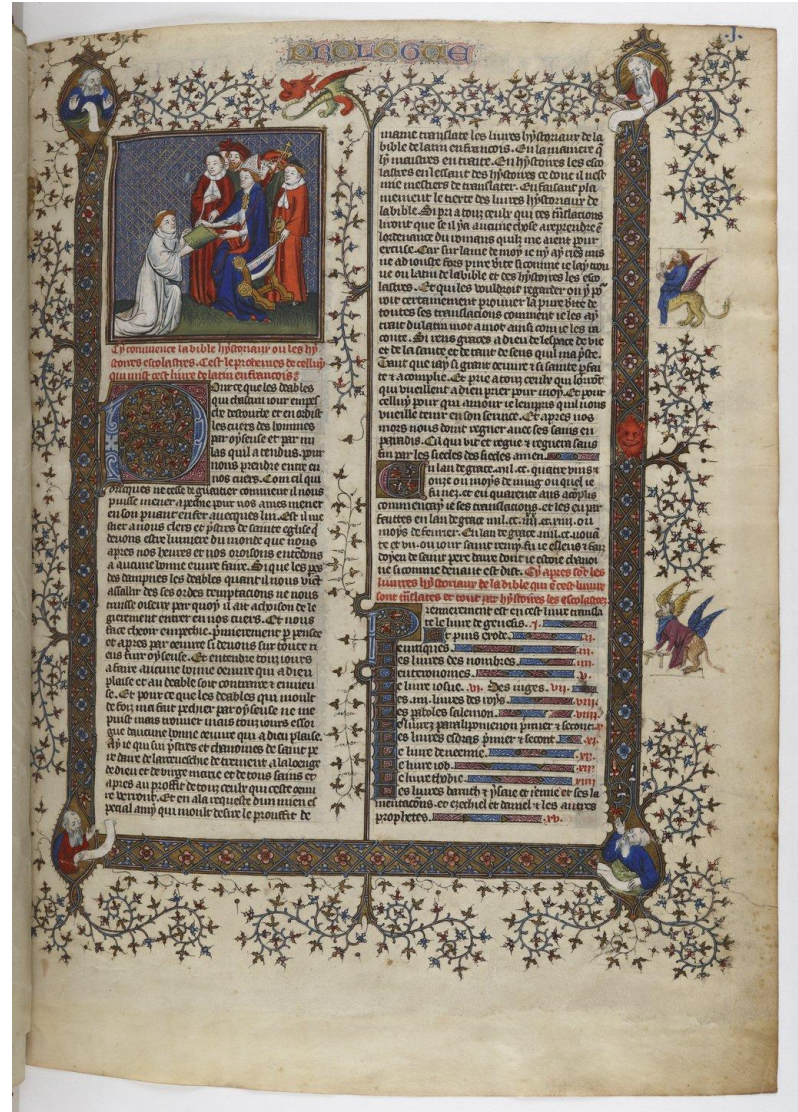 PROLOGUE
.J.
Cy commence la bible hystoriaux ou les hy
stoires escolastres. Cest le prohemes de celluy
qui mist cest liure de latin en francois
Pour ce que les deables
qui chascun iour empes
che destourbe et en ordist
les cuers des hommes
par oyseuse et par mi
las quil a tendus pour
nous prendre entre en
nos cuers. Com cil qui
onques ne cesse de guaitier comment il nous
puisse mener a pechie pour nos ames mener
en son puant enfer auecques lui. Est il me
stier a nous clers et pstres de sainte eglise q̃
deuons estre lumiere du monde que nous
apres nos heures et nos oroisons entẽdons
a aucune bonne euure faire. Si que les pe
des dampnes les deables quant il nous vient
assaillir des ses ordes temptacions ne nous
truisse oiseux par quoy il ait achoison de le
gierement entrer en nos cuers. Et nous
face cheoir en pechie. p̃mierement p pensee
et apres par oeuure si deuons sur toute ri
ens fuir oyseuse. Et entendre touz iours
a faire aucune bonne oeuure qui a dieu
plaise et au deable soit contraire et ennieu
se. Et pour ce que les deables qui moult
de foiz ma fait pechier par oyseuse ne me
puist mais trouuer mais touz iours essoi
gne daucune bonne oeuure qui a dieu plaise.
Ay ie qui sui pstres et chanoines de saint pe
re daire de larceueschie de treuient a la loenge
de dieu et de virge marie et de tous sains et
apres au proffit de touz ceulx qui ceste oeuu
re verront. Et en a la requeste dun mien es
pecial amy qui moult desire le prouffit de
mame translate les liures hystoriaux de la
bible de latin en francois. En la maniere q̃
ly maistres en traite. En hystoires les esco
lastres en lessant des hystoires ce dont il nest
mie mestiers de translater. En faisant pla
inement le tierte des liures hystoriaux de
la bible. Si pri a touz ceulx qui ces trãslacions
liront que se il y a aucune chose a reprendre ẽ
lordenance du romans quilz me aient pour
excuse. Car sur lame de moy ie ny ay riẽs mis
ne adiouste fors pure vite si comme ie lay trou
ue ou latin de la bible et des hystoires les esco
lastres. Et qui les vouldroit regarder on y po
uoit certainement prouuer la pure vite de
toutes ses translacions comment ie les ay
trait du latin mot a mot ainsi com ie les ra
conte. Si rens graces a dieu de lespace de vie
et de la sante et de tant de sens quil ma p̃ste.
Tant que iay si grant oeuure z si sainte p̃fai
te z acomplie. Et prie a touz ceulx qui lorrõt
qui vueillent a dieu prier pour moy. Et pour
celluy pour qui amour ie lempris quil nous
vueille tenir en son seruice. Et apres nos
mors nous doint regner auec ses sains en
paradis. Cil qui vit et regne z regnera sans
fin par les siecles des siecles amen.
En lan de grace .mil. cc. quatre vins z
onze ou moys de iuing ou quel ie
fu nez. et eu quarente ans acõplis
commencay ie ses translacions. et les eu par
faittes en lan de grace mil. cc. iiii. xx. xiiii. ou
moys de feurier. En lan de grace .mil. cc. nouã
te et vii. ou iour saint remy fu ie esleus z fais
doyen de saint pere daire dont ie estoie chanoi
ne si comme deuant est dist. Cy apres sõt les
liures hystoriaux de la bible qui ẽ cest liure
sont trãslates et tout par hystoires les escolastres
Premierement est en cest liure transla
te le liure de genesis. i.
Le puis exode. ii.
Leuitiques. iii.
Les liures des nombres. iiii.
Deuteronomes. v.
Le liure iosue. vi. Des iuges. vii.
Les .iiii. liures des roys. viii.
Les paboles salemon. viiii.
Les liurez paralipomenon p̃mier z second. x.
Les liures esdras p̃mier z secont. xi.
Le liure de neemie. xii.
Le liure iob. xiii.
Le liure thobie. xiiii.
Les liures baruth z ysaie et ieremie et ses la
mentacons. et ezechiel et daniel z les autres
prophetes. xv.